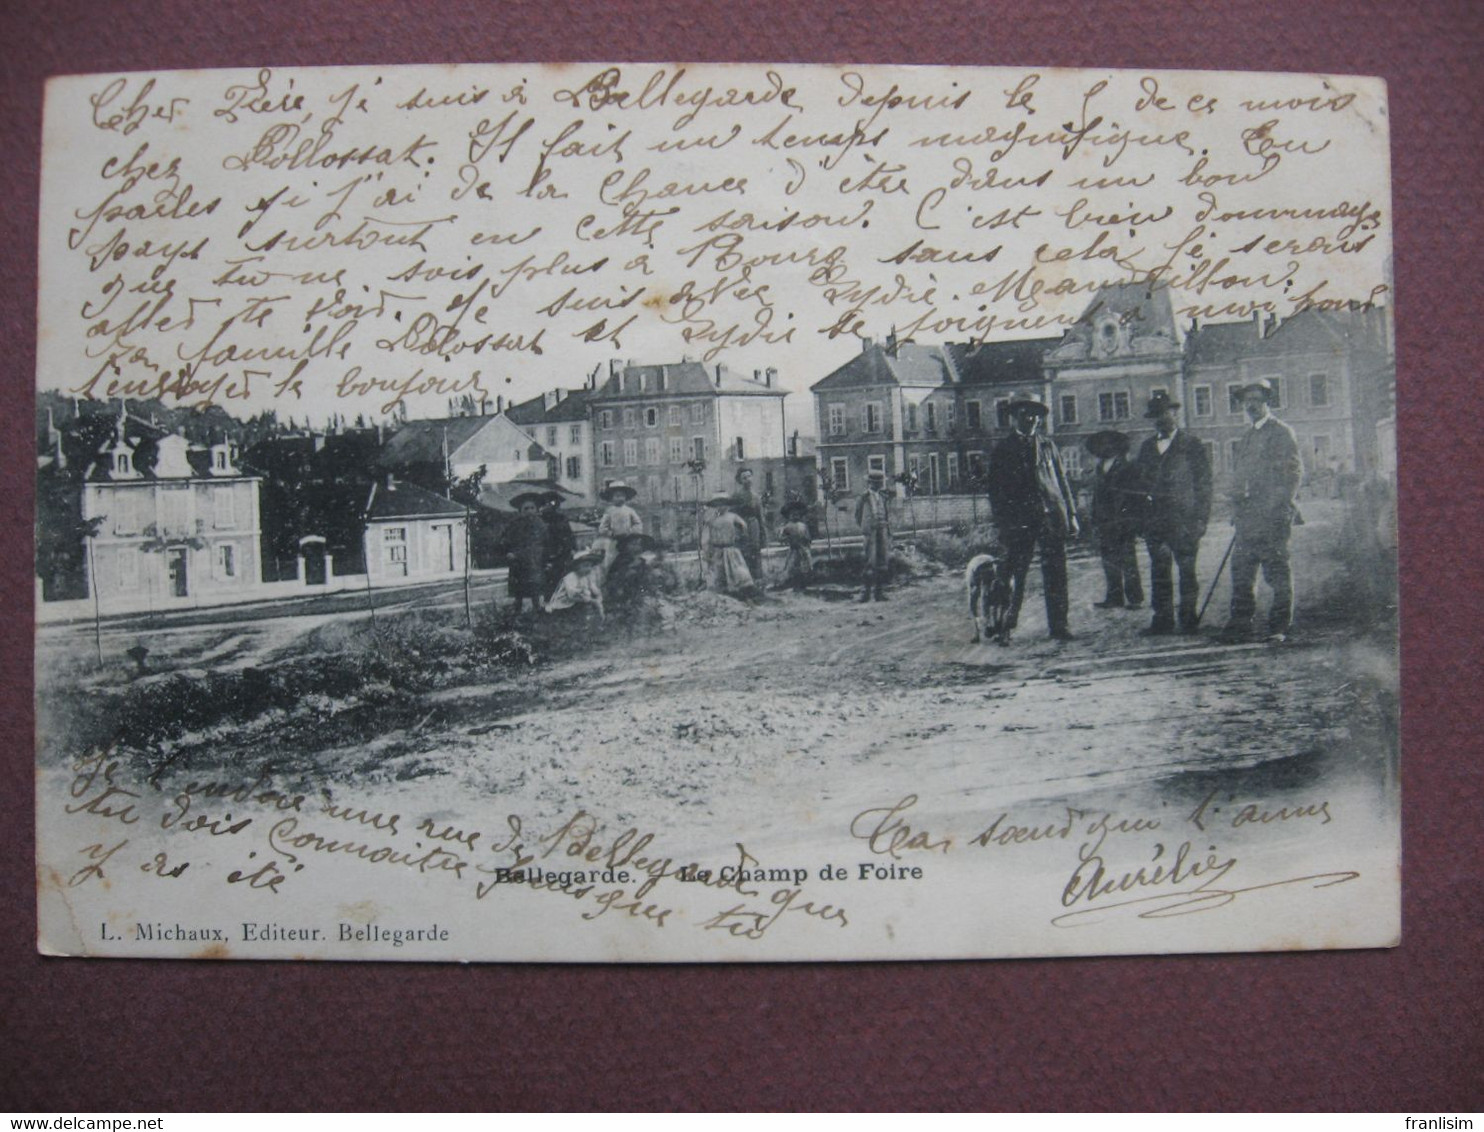 Cher Frère, je suis à Bellegarde depuis le 5 de ce mois
chez Dollossat. Il fait un temps magnifique. Tu
parles si j'ai de la chance d'être dans un bon
pays surtout en cette saison. C'est bien dommage
que tu ne sois plus à Bourg sans cela je serais
aller te voir. Je suis avec Lydie Mandrillon.
La famille Dolossat et Lydie se joignent à moi pour
t'envoyer le bonjour.
Je t'envoie une vue de Bellegarde que
tu dois connaitre puisque tu
y as été
Bellegarde. Le Champ de Foire
Ta sœur qui t'aime
Aurélie
L. Michaux, Editeur. Bellegarde
franlisim